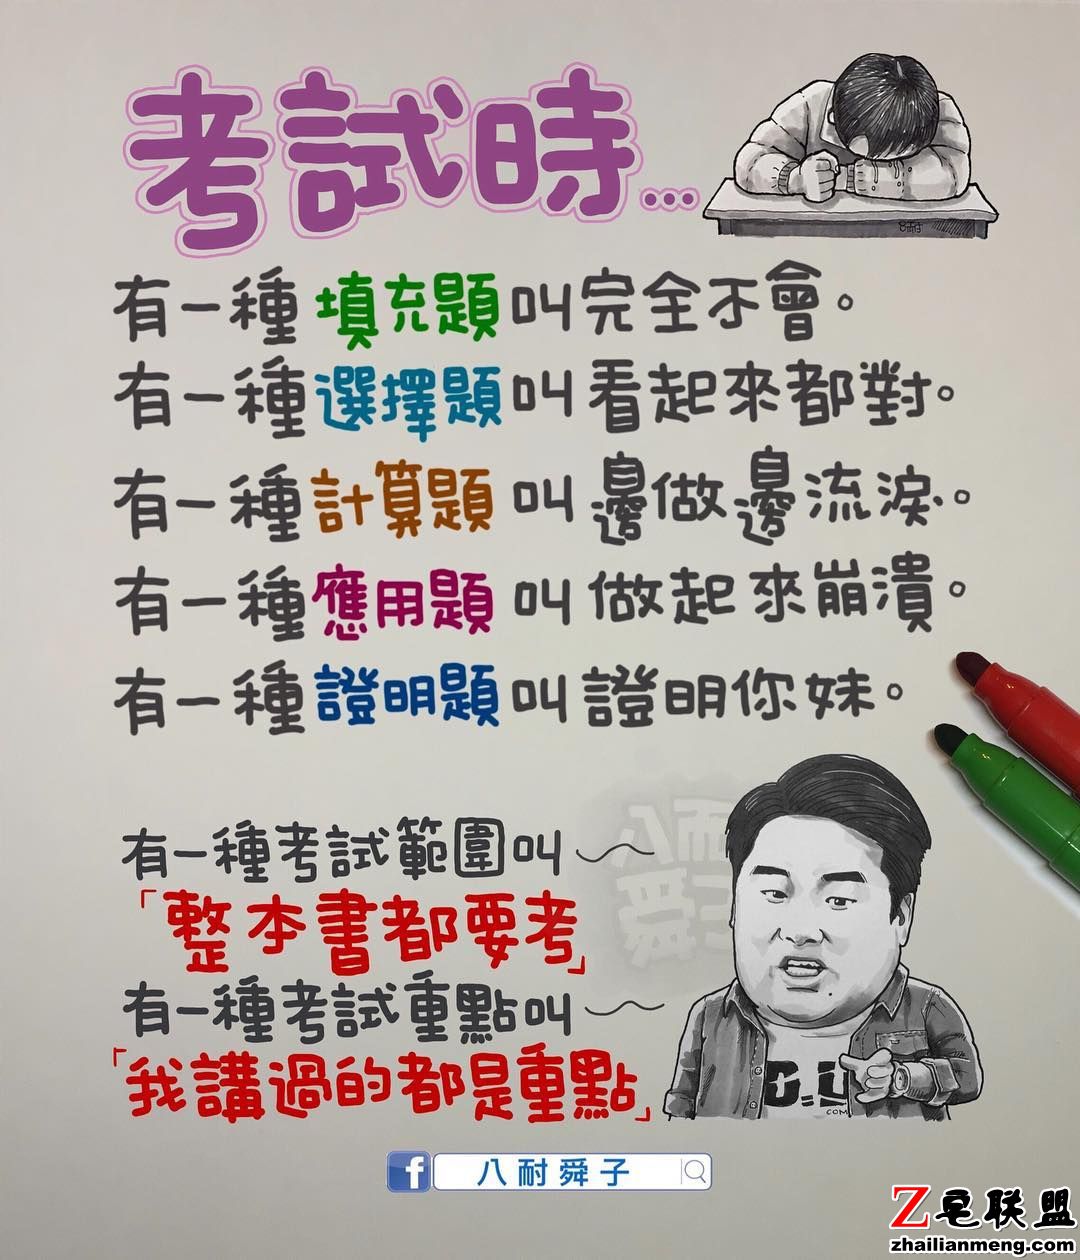 考試時...
有一種填充題叫完全不會。
有一種選擇題叫看起來都對。
有一種計算題叫邊做邊流淚。
有一種應用題叫做起來崩潰。
有一種證明題叫證明你妹。
有一種考試範圍叫～
「整本書都要考」
有一種考試重點叫～
「我講過的都是重點」
八耐舜子
八耐
D.U
COM
f 八耐舜子
Z宅联盟
zhailianmeng.com